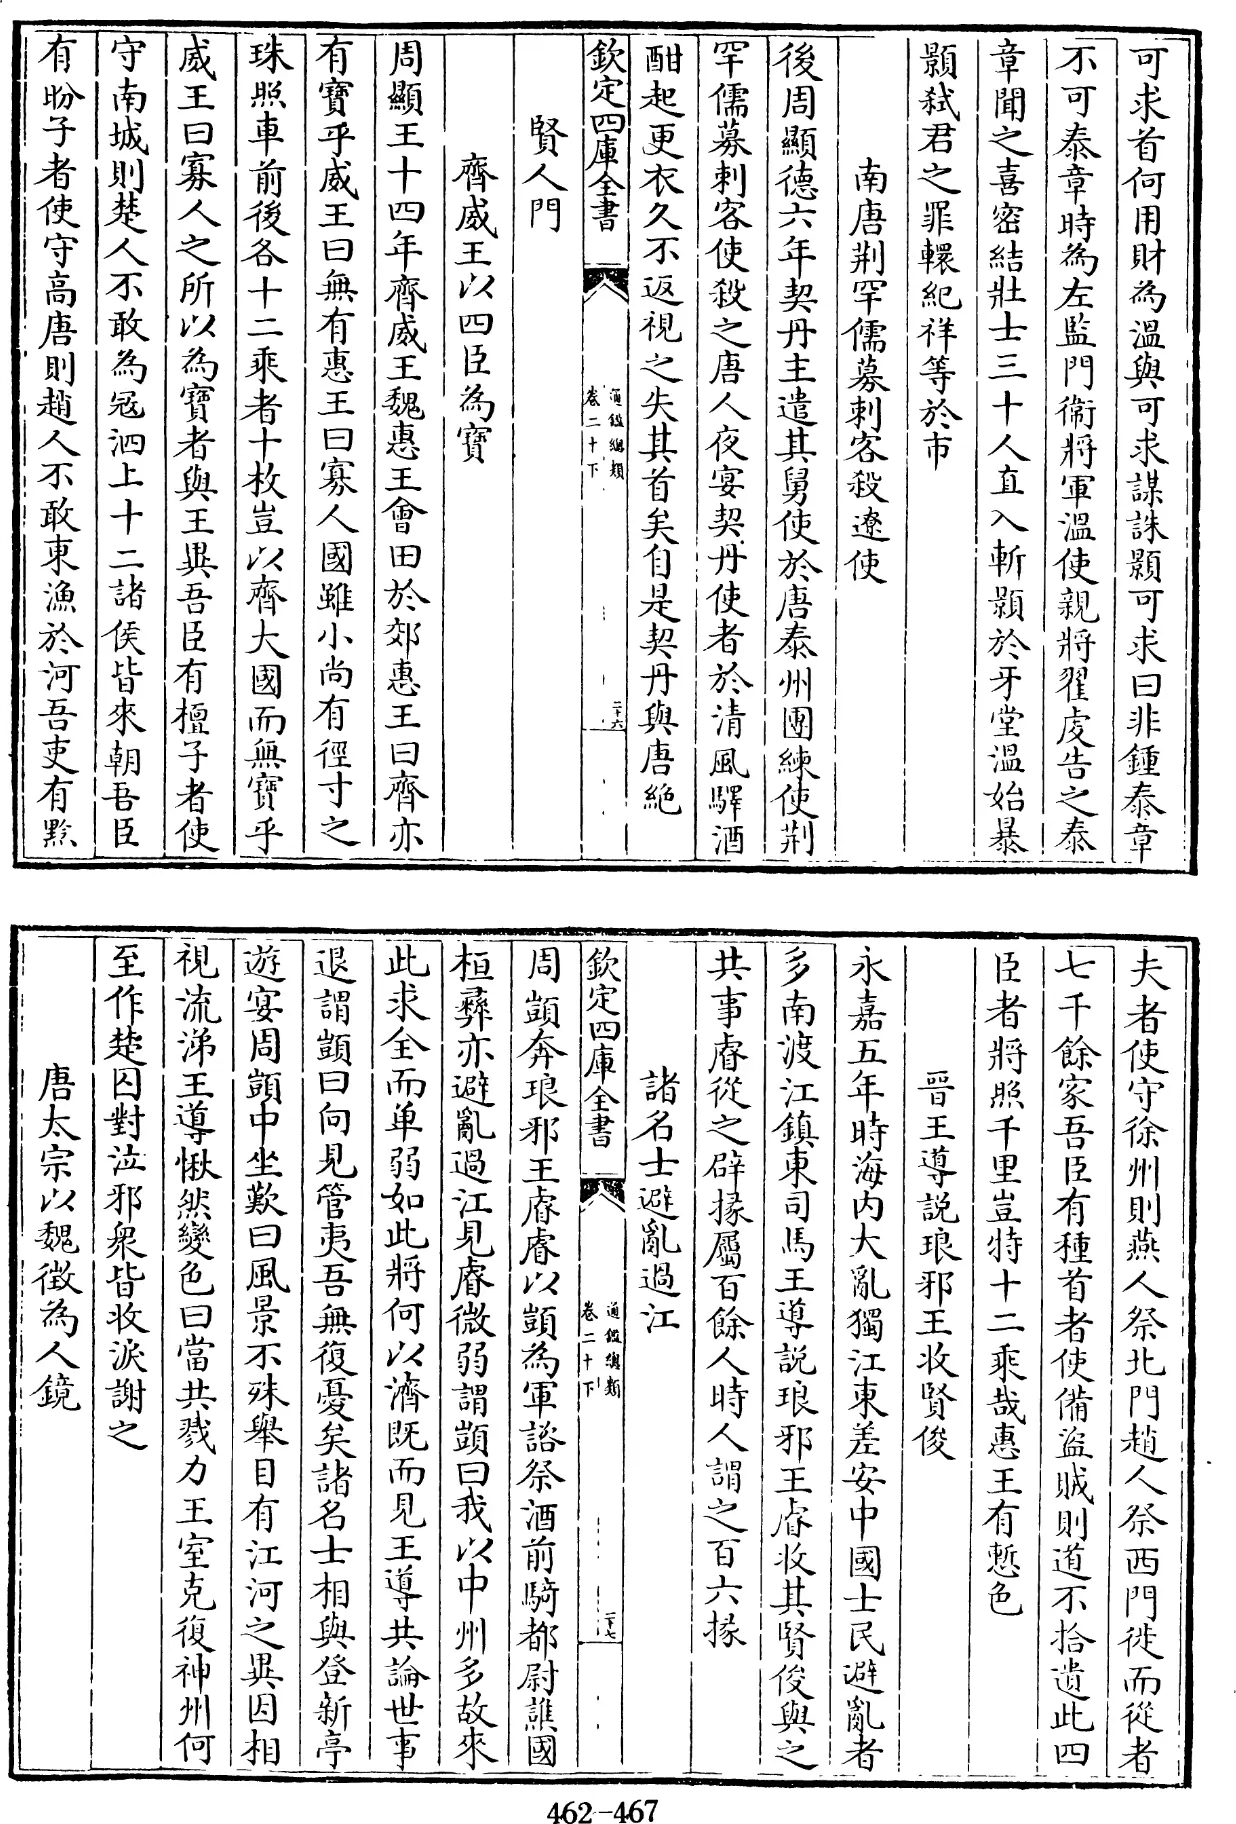 可求首何用財為溫與可求謀誅顥可求曰非鍾泰章
不可泰章時為左監門衞將軍溫使親將翟虔告之泰
章聞之喜密結壯士三十人直入斬顥於牙堂溫始暴
顥弑君之罪轘紀祥等於市
南唐荆罕儒募刺客殺遼使
後周顯德六年契丹主遣其舅使於唐泰州團練使荆
罕儒募刺客使殺之唐人夜宴契丹使者於清風驛酒
酣起更衣久不返視之失其首矣自是契丹與唐絶
欽定四庫全書
通鑑總類
卷二十下
二十六
賢人門
齊威王以四臣為寶
周顯王十四年齊威王魏惠王會田於郊惠王曰齊亦
有寶乎威王曰無有惠王曰寡人國雖小尚有徑寸之
珠照車前後各十二乘者十枚豈以齊大國而無寶乎
威王曰寡人之所以為寶者與王異吾臣有檀子者使
守南城則楚人不敢為冦泗上十二諸侯皆來朝吾臣
有盼子者使守高唐則趙人不敢東漁於河吾吏有黔
夫者使守徐州則燕人祭北門趙人祭西門徙而從者
七千餘家吾臣有種首者使備盗賊則道不拾遺此四
臣者將照千里豈特十二乘哉惠王有慙色
晉王導説琅邪王收賢俊
永嘉五年時海内大亂獨江東差安中國士民避亂者
多南渡江鎮東司馬王導説琅邪王睿收其賢俊與之
共事睿從之辟掾屬百餘人時人謂之百六掾
諸名士避亂過江
欽定四庫全書
通鑑總類
卷二十下
二十七
周顗奔琅邪王睿睿以顗為軍諮祭酒前騎都尉譙國
桓彝亦避亂過江見睿微弱謂顗曰我以中州多故來
此求全而单弱如此將何以濟既而見王導共論世事
退謂顗曰向見管夷吾無復憂矣諸名士相與登新亭
遊宴周顗中坐歎曰風景不殊舉目有江河之異因相
視流涕王導愀然變色曰當共戮力王室克復神州何
至作楚囚對泣邪衆皆收淚謝之
唐太宗以魏徵為人鏡
462-467